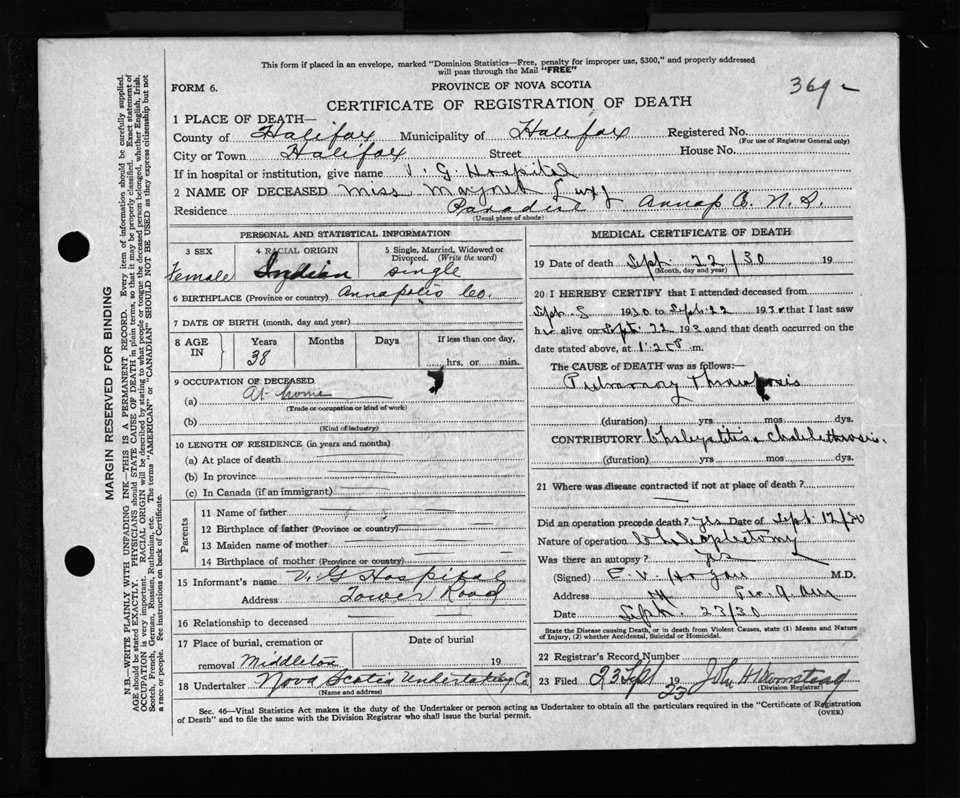 This form if placed in an envelope, marked "Dominion Statistics—Free, penalty for improper use, $300," and properly addressed
will pass through the Mail "FREE"
FORM 6.
PROVINCE OF NOVA SCOTIA
369
CERTIFICATE OF REGISTRATION OF DEATH
1 PLACE OF DEATH—
County of Halifax Municipality of Halifax Registered No.
(For use of Registrar General only)
City or Town Halifax Street House No.
If in hospital or institution, give name V. G. Hospital
2 NAME OF DECEASED Miss
Residence Paradise Annap Co. N. S.
(Usual place of abode)
PERSONAL AND STATISTICAL INFORMATION
3 SEX
Female
4 RACIAL ORIGIN
Indian
5 Single, Married, Widowed or Divorced. (Write the word)
single
6 BIRTHPLACE (Province or country) Annapolis Co.
7 DATE OF BIRTH (month, day and year)
8 AGE IN Years Months Days If less than one day,
38 hrs. or min.
9 OCCUPATION OF DECEASED
(a) At home
(Trade or occupation or kind of work)
(b)
(Kind of industry)
10 LENGTH OF RESIDENCE (in years and months)
(a) At place of death
(b) In province
(c) In Canada (if an immigrant)
Parents
11 Name of father
12 Birthplace of father (Province or country)
13 Maiden name of mother
14 Birthplace of mother (Province or country)
15 Informant's name V. G Hospital
Address Tower Road
16 Relationship to deceased
17 Place of burial, cremation or Date of burial
removal Middleton 19
18 Undertaker Nova Scotia Undertaking Co
(Name and address)
MEDICAL CERTIFICATE OF DEATH
19 Date of death Sept 22/30 19
(Month, day and year)
20 I HEREBY CERTIFY that I attended deceased from
Sept 1930 to Sept 22 1930 that I last saw
her alive on Sept 22 1930 and that death occurred on
date stated above, at m.
The CAUSE of DEATH was as follows:—
Pulmonary Thrombosis
(duration) yrs mos dys.
CONTRIBUTORY
(duration) yrs mos dys.
21 Where was disease contracted if not at place of death?
Did an operation precede death? Yes Date of Sept 12/30
Nature of operation
Was there an autopsy? Yes
(Signed) E. V. Hogan M.D.
Address
Date Sept. 23/30
State the Disease causing Death, or in death from Violent Causes, state (1) Means and Nature
of Injury, (2) whether Accidental, Suicidal or Homicidal.
22 Registrar's Record Number
23 Filed 23 Sept 19
23
(Division Registrar)
Sec. 46—Vital Statistics Act makes it the duty of the Undertaker or person acting as Undertaker to obtain all the particulars required in the "Certificate of Registration
of Death" and to file the same with the Division Registrar who shall issue the burial permit.
(OVER)
MARGIN RESERVED FOR BINDING
N.B.—WRITE PLAINLY WITH UNFADING INK—THIS IS A PERMANENT RECORD. Every item of information should be carefully supplied.
AGE should be stated EXACTLY. PHYSICIANS should STATE CAUSE OF DEATH in plain terms, so that it may be properly classified. Exact statement of
OCCUPATION is very important. RACIAL ORIGIN will be described by stating to what people or tongue the deceased person belonged, whether English, Irish,
Scotch, French, German, Russian, Ruthenian, etc. The terms "AMERICAN" or "CANADIAN" SHOULD NOT BE USED as they express citizenship but not
a race or people. See instructions on back of Certificate.